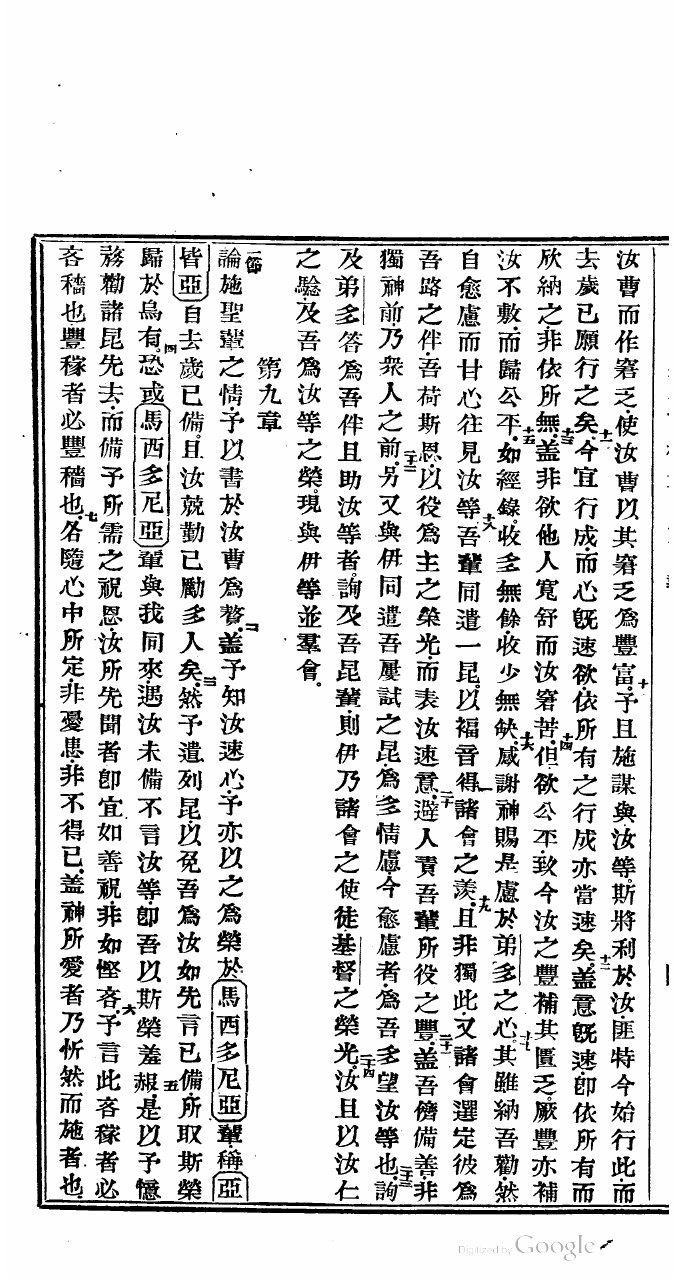 汝曹而作窘乏、使汝曹以其窘乏爲豐富。十予且施謀與汝等、斯將利於汝、匪特今始行此、而
去歲已願行之矣。十一今宜行成、而心旣速欲、依所有之行成亦當速矣。十二蓋意旣速、卽依所有而
欣納之、非依所無。十三蓋非欲他人寬舒而汝窘苦、十四但欲公平、致今汝之豐補其匱乏、厥豐亦補
汝不敷、而歸公平。十五如經錄、收多無餘、收少無缺。十六感謝神賜是慮於弟多之心。十七其雖納吾勸、然
自愈慮而甘心往見汝等。十八吾輩同遣一昆、以福音得諸會之羨。十九且非獨此、又諸會選定彼爲
吾路之伴、吾荷斯恩、以役爲主之榮光而表汝速意。二十避人責吾輩所役之豐。二十一蓋吾儕備善、非
獨神前、乃衆人之前。二十二另又與伊同遣吾屢試之昆、爲多情慮、今愈慮者、爲吾多望汝等也。二十三詢
及弟多、答爲吾伴且助汝等者、詢及吾昆輩、則伊乃諸會之使徒、基督之榮光。二十四汝且以汝仁
之驗、及吾爲汝等之榮、現與伊等並羣會。
第九章
一節論施聖輩之情、予以書於汝曹爲贅。二蓋予知汝速心、予亦以之爲榮於馬西多尼亞輩、稱亞
皆亞自去歲已備、且汝兢勤已勵多人矣。三然予遣列昆、以免吾爲汝如先言已備、所取斯榮
歸於烏有。四恐或馬西多尼亞輩與我同來、遇汝未備、不言汝等、卽吾以斯榮羞赧。五是以予憶
務勸諸昆先去、而備予所需之祝恩、汝所先聞者、卽宜如善祝、非如慳吝。六予言此、吝稼者必
吝穡也、豐稼者必豐穡也。七各隨心中所定、非憂患、非不得已、蓋神所愛者、乃忻然而施者也。
Digitized by Google